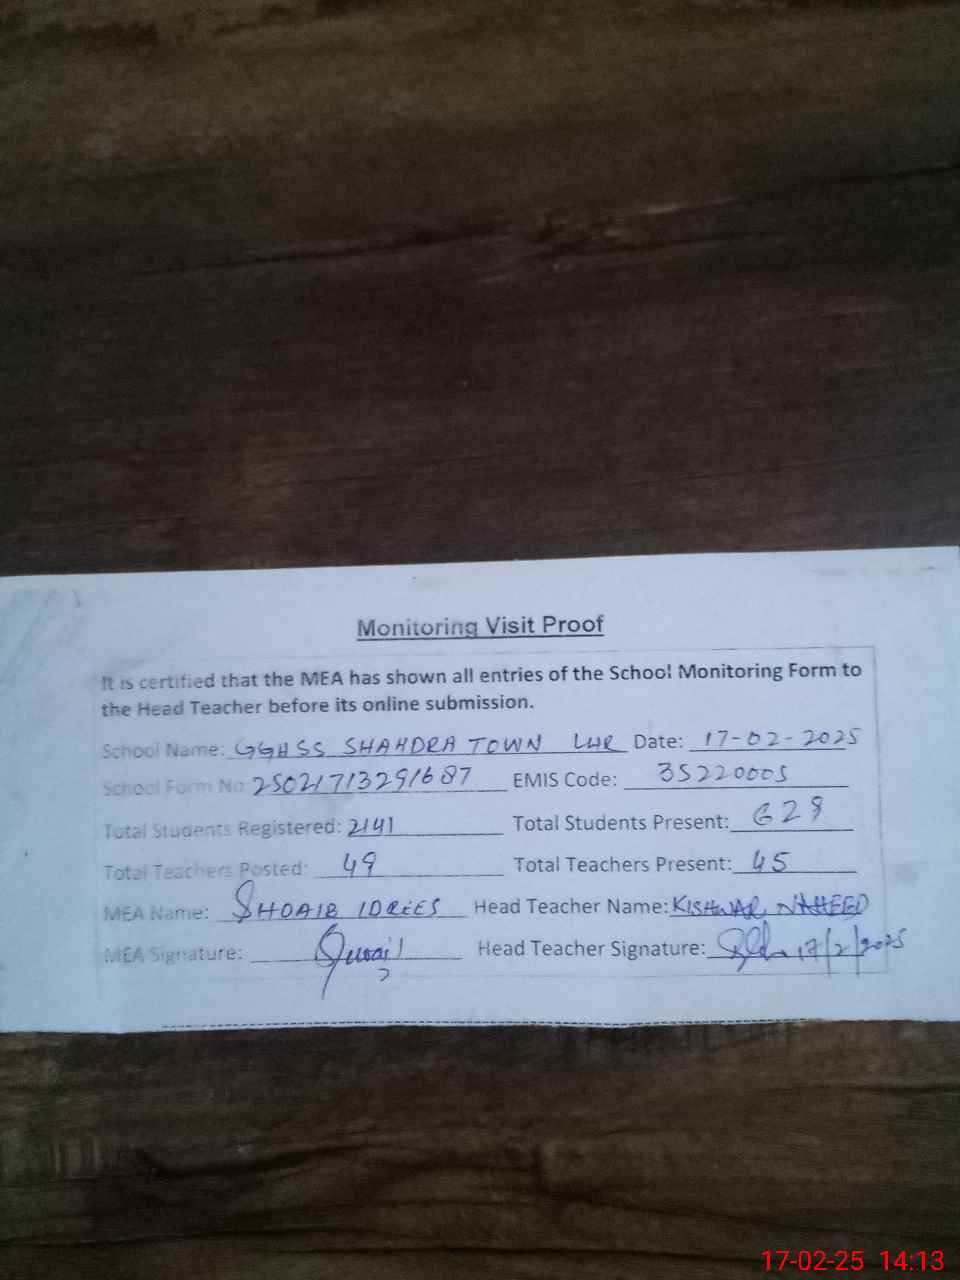 Monitoring Visit Proof
It is certified that the MEA has shown all entries of the School Monitoring Form to
the Head Teacher before its online submission.
School Name: GGHSS SHAHDRA TOWN LHR Date: 17-02-2025
School Form No 25021713291687 EMIS Code: 35220005
Total Students Registered: 2141 Total Students Present: 628
Total Teachers Posted: 49 Total Teachers Present: 45
MEA Name: SHOAIB IDREES Head Teacher Name: KISHWAR NAHEED
MEA Signature: Head Teacher Signature: 17/2/2025
17-02-25 14:13